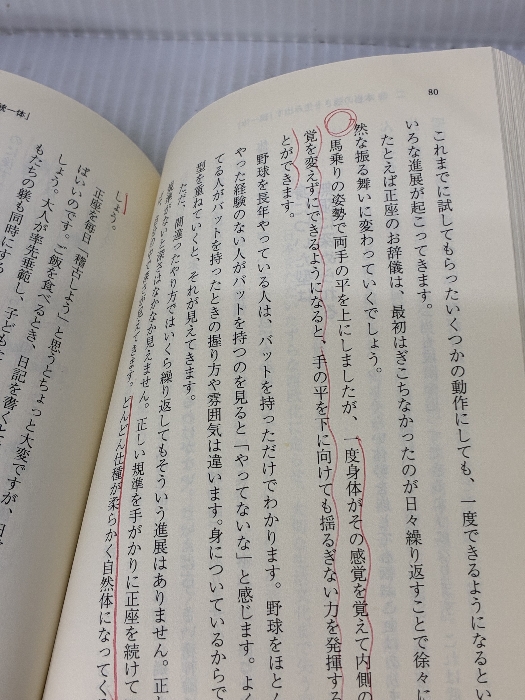 80
これまでに試してもらったいくつかの動作にしても、一度できるようになるとい
ろいろな進展が起こってきます。
たとえば正座のお辞儀は、最初はぎこちなかったのが日々繰り返すことで徐々に
然な振る舞いに変わっていくでしょう。
馬乗りの姿勢で両手の平を上にしましたが、一度身体がその感覚を覚えて内側の
覚を変えずにできるようになると、手の平を下に向けても揺るぎない力を発揮する
とができます。
野球を長年やっている人は、バットを持っただけでわかります。野球をほとん
やった経験のない人がバットを持つのを見ると「やってないな」と感じます。よく
てる人がバットを持ったときの握り方や雰囲気は違います。身についているからで
型を重ねていくと、それが見えてきます。
ただ、間違ったやり方ではいくら繰り返してもそういう進展はありません。正
最準がないと深さはなかなか見えません。正しい規準を手がかりに正座を続けて
どんどん仕種が柔らかく自然体になってく
しょう。
正座を毎日「稽古しよう」と思うとちょっと大変ですが、日
ばいいのです。ご飯を食べるとき、日記を書くとき
しょう。大人が率先垂範し、子ども
もたちの躾も同時にする
一体」